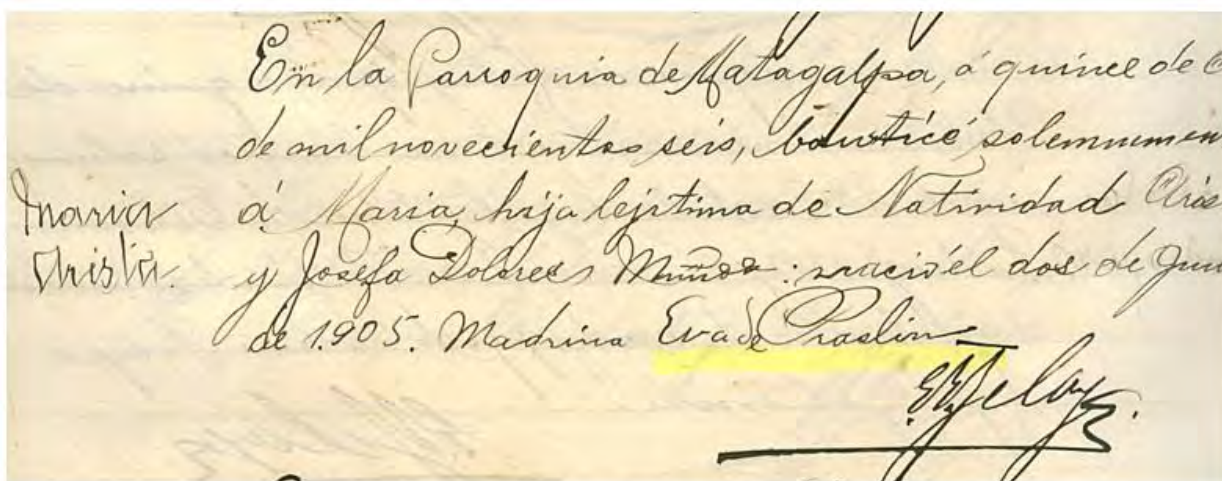 En la Parroquia de Matagalpa, á quince de
de mil novecientos seis, bauticé solemnemen
Maria á Maria, hija lejitima de Natividad
Christa. y Josefa Dolores Muñoz: nació el dos de Jun
de 1.905. Madrina Eva de Praslin